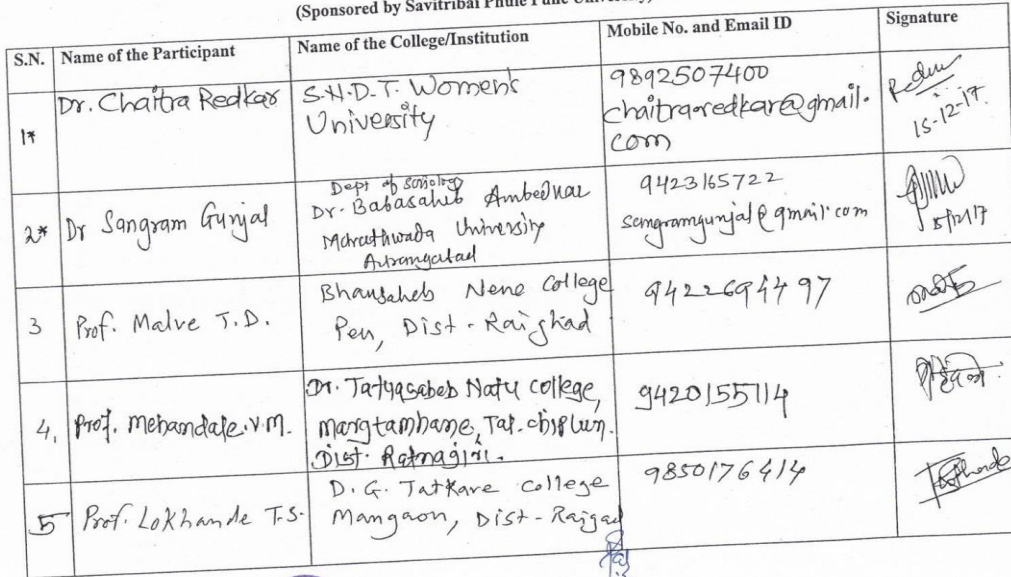 (Sponsored by Savitribai Phule Pune University)
S.N. Name of the Participant Name of the College/Institution Mobile No. and Email ID Signature
1* Dr. Chaitra Redkar S.N.D.T. Women's
University
9892507400
chaitra.redkar@gmail.
com
15-12-17.
2* Dr Sangram Gunjal Dept of Sociology
Dr. Babasaheb Ambedkar
Marathwada University
Aurangabad
9423165722
sangramgunjal@gmail.com
15/12/17
3 Prof. Malve T.D. Bhausaheb Nene College
Pen, Dist - Raighad
9422694497
4. Prof. Mehandale.V.M. Dr. Tatyasaheb Natu college,
margtamhane, Tal. chiplun.
Dist. Ratnagiri.
9420155114
5 Prof. Lokhande T.S. D.G. Tatkare college
Mangaon, Dist - Raigad
9850176414